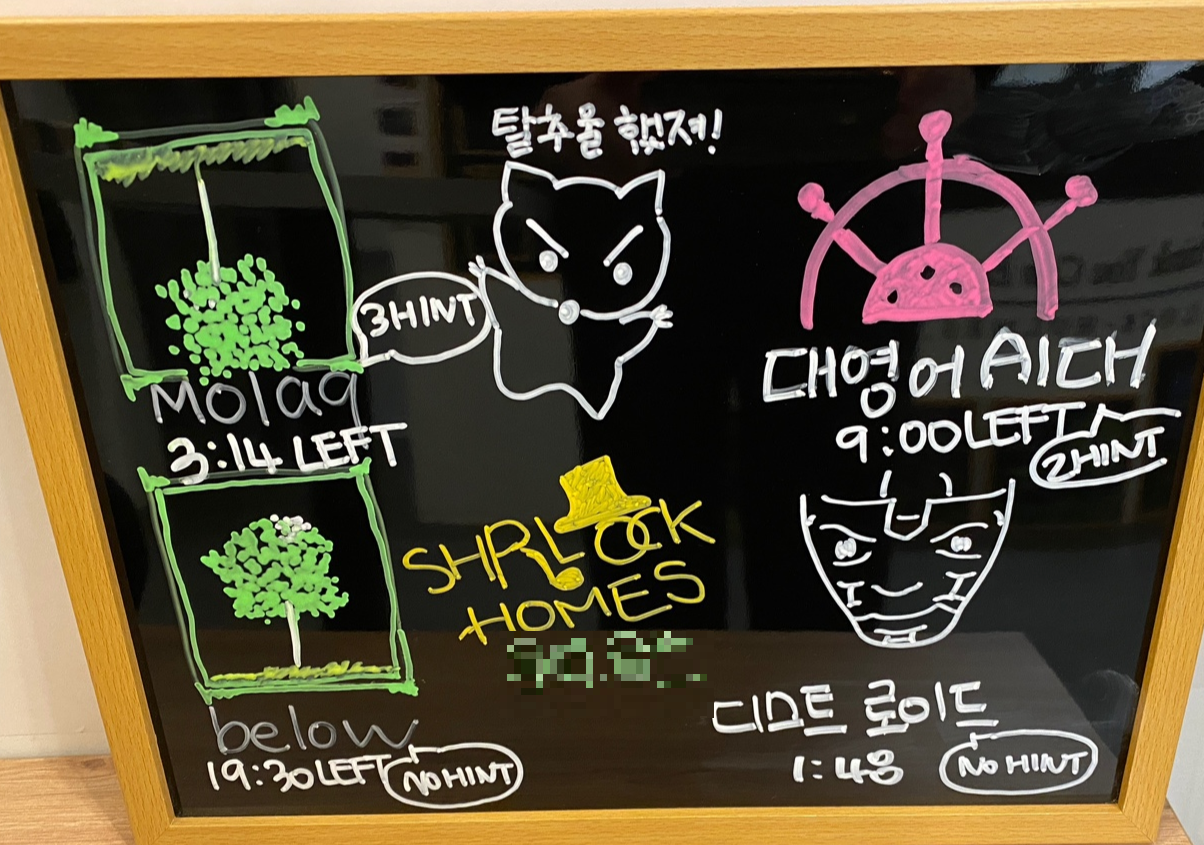 탈추울 했져!
3HINT
Molaq
3:14 LEFT
대영어 AI대
9:00 LEFT
2HINT
SHRLOCK
HOMES
below
19:30 LEFT
NO HINT
디스트 로이드
1:48
NO HINT